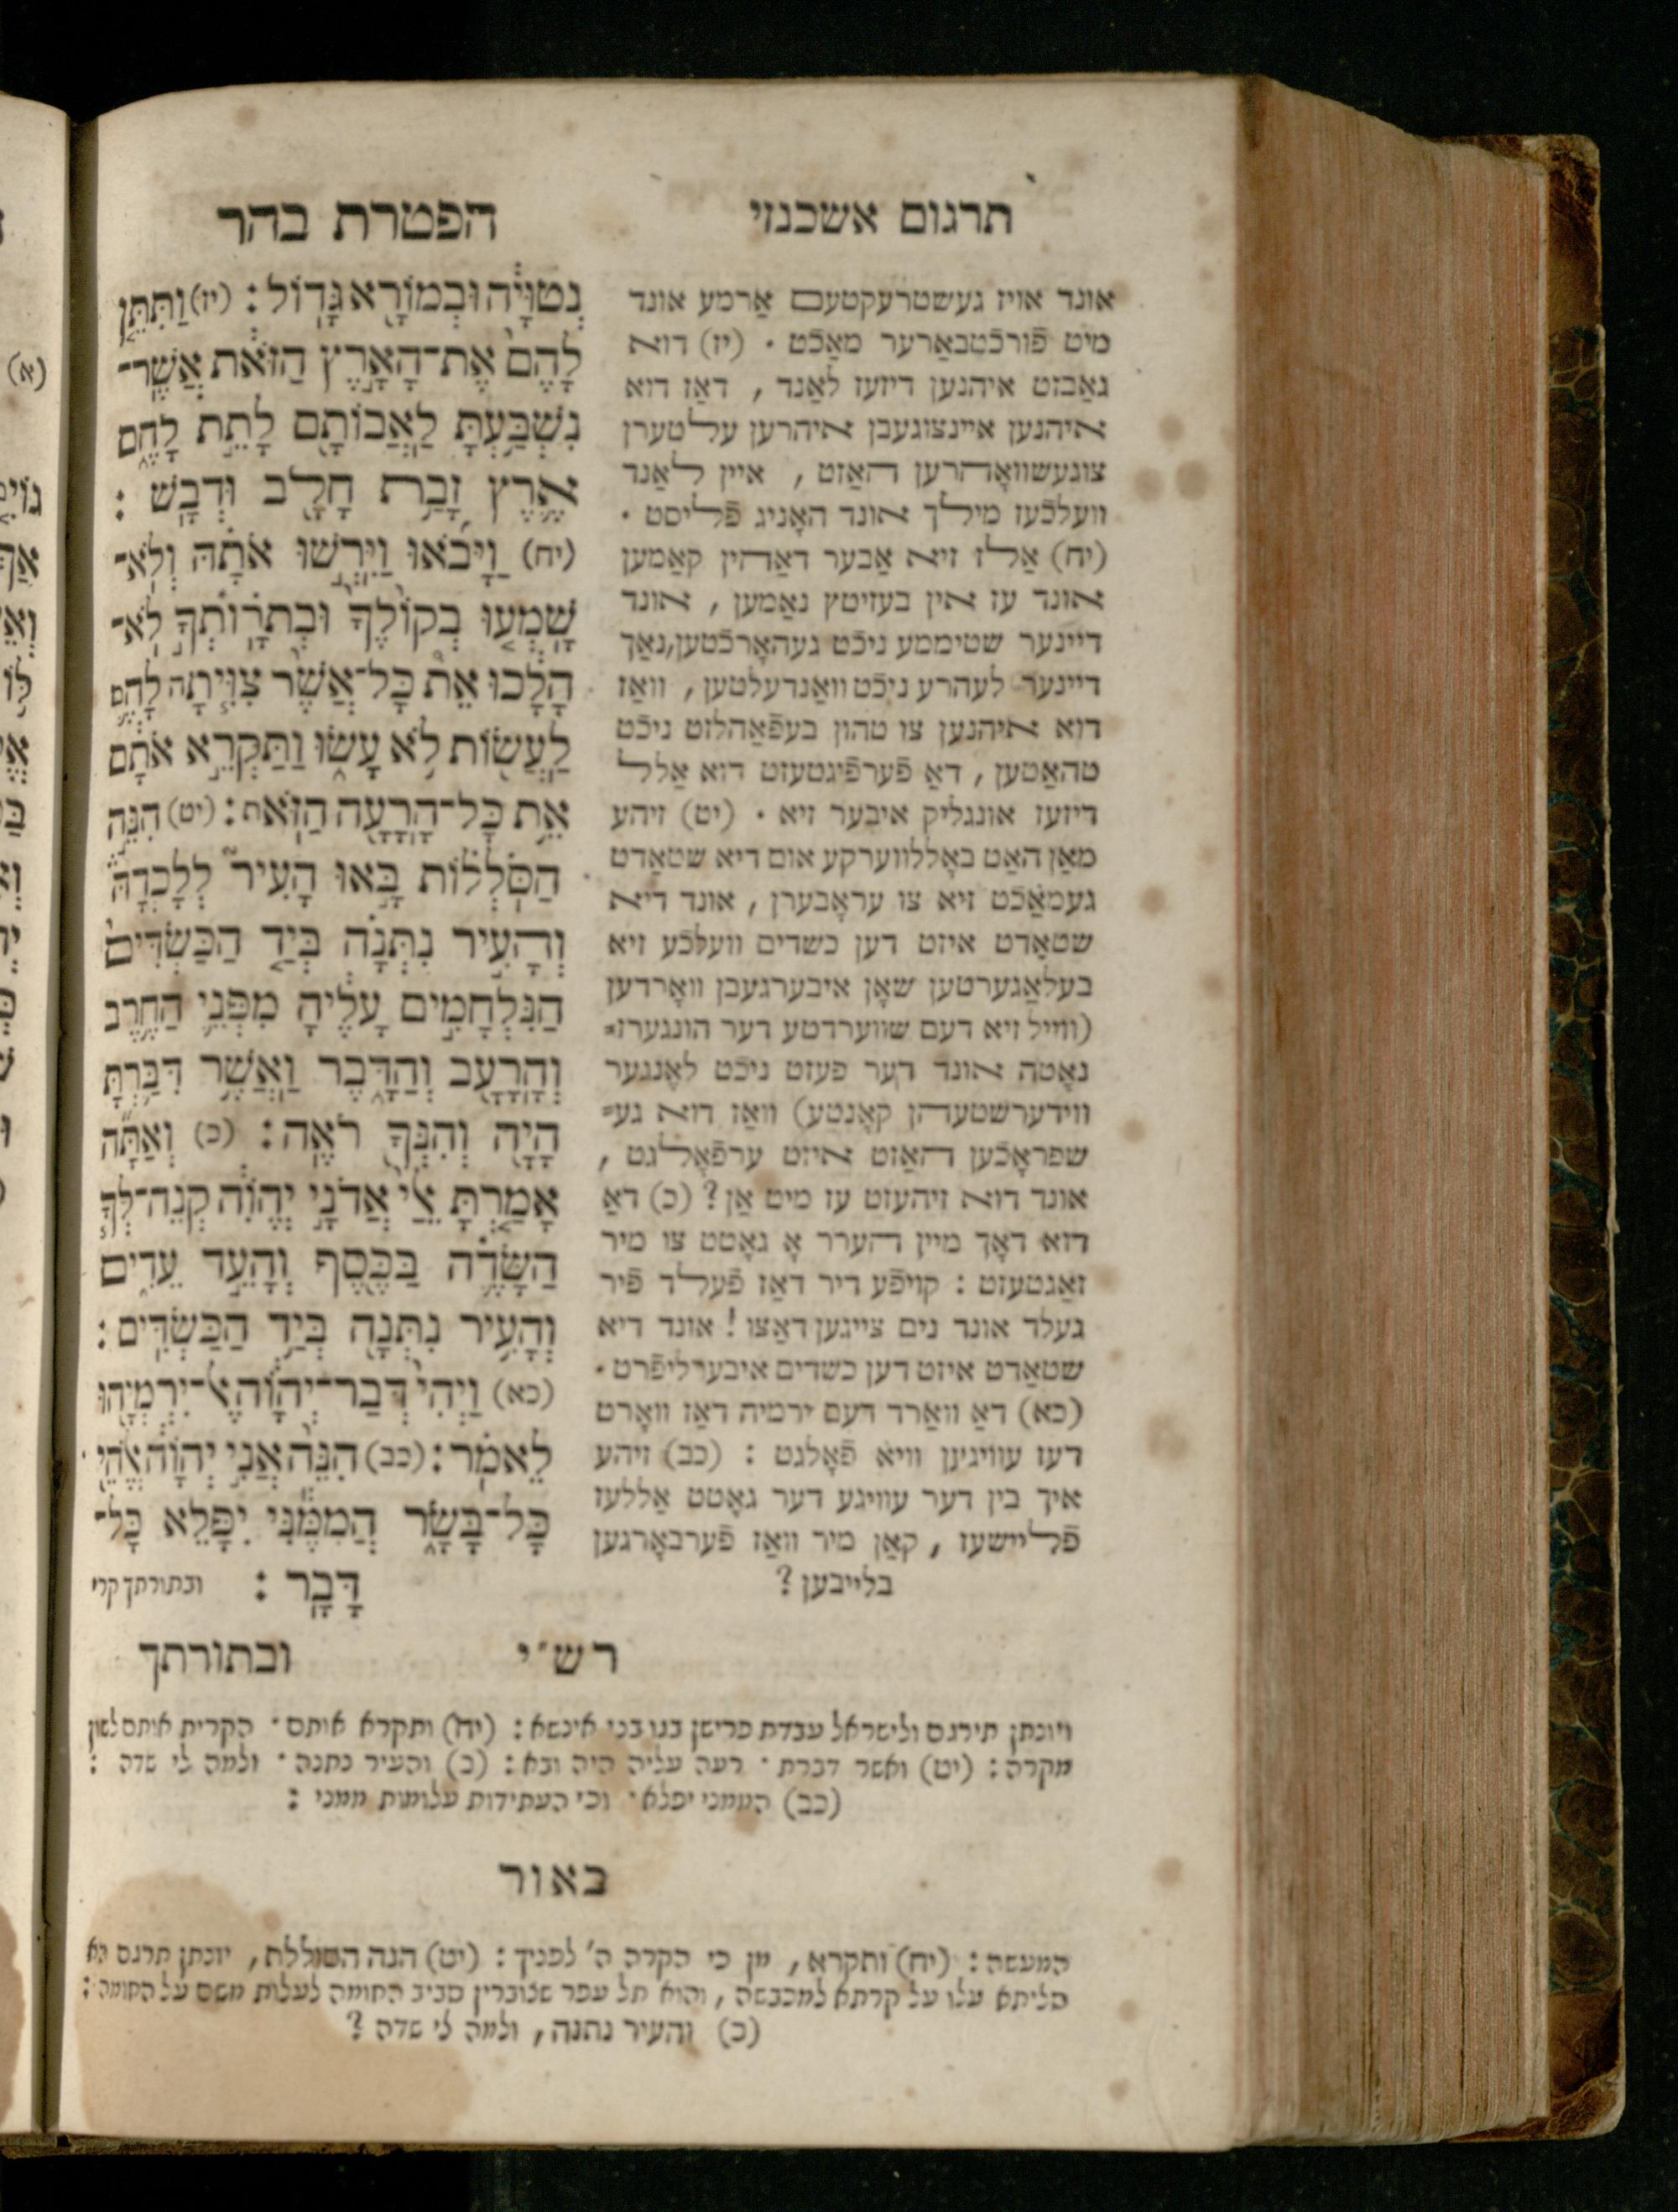 תרגום אשכנזי
אונד אויז געשטרעקטעם אַרמע אונד
מיט פֿורכֿטבאַרער מאַכֿט . (יז) דוא
גאַבזט איהנען דיזעז לאַנד , דאַז דוא
איהנען איינצוגעבן איהרען עלטערן
צוגעשוואָהרען האַזט , איין לאַנד
וועלכֿעז מילך אונד האָניג פֿליסט .
(יח) אַלז זיא אַבער דאַהין קאַמען
אונד עז אין בעזיטץ נאַמען , אונד
דיינער שטיממע ניכֿט געהאָרכֿטען,נאַך
דיינער לעהרע ניכֿט וואַנדעלטען , וואַז
דוא איהנען צו טהון בעפֿאַהלזט ניכֿט
טהאַטען , דאַ פֿערפֿיגטעזט דוא אַלל
דיזעז אונגליק איבער זיא . (יט) זיהע
מאַן האַט באָללווערקע אום דיא שטאַדט
געמאַכֿט זיא צו עראָבערן , אונד דיא
שטאַדט איזט דען כשדים וועלכֿע זיא
בעלאַגערטען שאָן איבערגעבן וואָרדען
(ווייל זיא דעם שווערדטע דער הונגערז=
נאָטה אונד דער פעזט ניכֿט לאָנגער
ווידערשטעהן קאָנטע) וואַז דוא גע=
שפראָכֿען האַזט איזט ערפֿאָלגט ,
אונד דוא זיהעזט עז מיט אַן ? (כ) דאַ
דוא דאָך מיין הערר אָ גאָטט צו מיר
זאַגטעזט : קויפֿע דיר דאַז פֿעלד פֿיר
געלד אונד נים צייגען דאַצו ! אונד דיא
שטאַדט איזט דען כשדים איבערליפֿרט.
(כא) דאַ וואַרד דעם ירמיה דאַז וואָרט
דעז עוויגען וויא פֿאָלגט : (כב) זיהע
איך בין דער עוויגע דער גאָטט אַללעז
פֿליישעז , קאַן מיר וואַז פֿערבאָרגען
בלייבען ?
הפטרת בהר
נְטוּיָ֔ה וּבְמוֹרָ֖א גָּדֽוֹל : (יז) וַתִּתֵּ֤ן
לָהֶם֙ אֶת־הָאָ֣רֶץ הַזֹּ֔את אֲשֶׁר־
נִשְׁבַּ֥עְתָּ לַאֲבוֹתָ֖ם לָתֵ֣ת לָהֶ֑ם
אֶ֛רֶץ זָבַ֥ת חָלָ֖ב וּדְבָֽשׁ :
(יח) וַיָּבֹ֜אוּ וַיִּֽרְשׁ֣וּ אֹתָ֗הּ וְלֹֽא־
שָׁמְע֤וּ בְקוֹלֶ֙ךָ֙ וּבְתֹרָותְךָ֣ לֹֽא־
הָלָ֔כוּ אֵת֩ כָּל־אֲשֶׁ֨ר צִוִּ֧יתָה לָהֶ֛ם
לַעֲשׂ֖וֹת לֹ֣א עָשׂ֑וּ וַתַּקְרֵ֣א אֹתָ֔ם
אֵ֥ת כָּל־הָרָעָ֖ה הַזֹּֽאת : (יט) הִנֵּ֣ה
הַסֹּלְל֗וֹת בָּ֣אוּ הָעִיר֮ לְלָכְדָהּ֒
וְהָעִ֣יר נִתְּנָ֗ה בְּיַ֤ד הַכַּשְׂדִּים֙
הַנִּלְחָמִ֣ים עָלֶ֔יהָ מִפְּנֵ֛י הַחֶ֥רֶב
וְהָרָעָ֖ב וְהַדָּ֑בֶר וַאֲשֶׁ֥ר דִּבַּ֛רְתָּ
הָיָ֖ה וְהִנְּךָ֥ רֹאֶֽה : (כ) וְאַתָּ֞ה
אָמַ֤רְתָּ אֵלַי֙ אֲדֹנָ֣י יֱהֹוִ֔ה קְנֵֽה־לְךָ֧
הַשָּׂדֶ֛ה בַּכֶּ֖סֶף וְהָעֵ֣ד עֵדִ֑ים
וְהָעִ֥יר נִתְּנָ֖ה בְּיַ֥ד הַכַּשְׂדִּֽים :
(כא) וַֽיְהִי֙ דְּבַר־יְהֹוָ֔ה אֶל־יִרְמְיָ֖הוּ
לֵאמֹֽר : (כב) הִנֵּה֙ אֲנִ֣י יְהֹוָ֔ה אֱלֹהֵ֖י
כָּל־בָּשָׂ֑ר הֲמִמֶּ֔נִּי יִפָּלֵ֖א כָּל־
דָּבָֽר : ובתורתך קרי
רש״י ובתורתך
ויונתן תירגם ולישראל עבדת פרישן בגו בני אינשא : (יח) ותקרא אותם · הקרית אותם לשון
מקרה : (יט) ואשר דברת · רעה עליה היה ובא : (כ) והעיר נתנה · ולמה לי שדה :
(כב) הממני יפלא · וכי העתידות עלומות ממני :
באור
המעשה : (יח) ותקרא , מן כי הקרה ה׳ לפניך : (יט) הנה הסוללת , יונתן תרגם הא
מליתא עלו על קרתא למכבשה , והוא תל עפר שצוברין סביב החומה לעלות משם על החומה :
(כ) והעיר נתנה , ולמה לי שדה ?